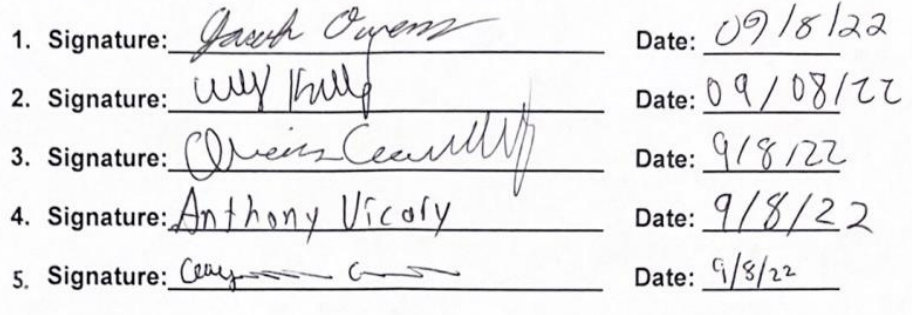 1. Signature: Jacob Owens Date: 09/8/22
2. Signature: Date: 09/08/22
3. Signature: Date: 9/8/22
4. Signature: Anthony Vicary Date: 9/8/22
5. Signature: Date: 9/8/22